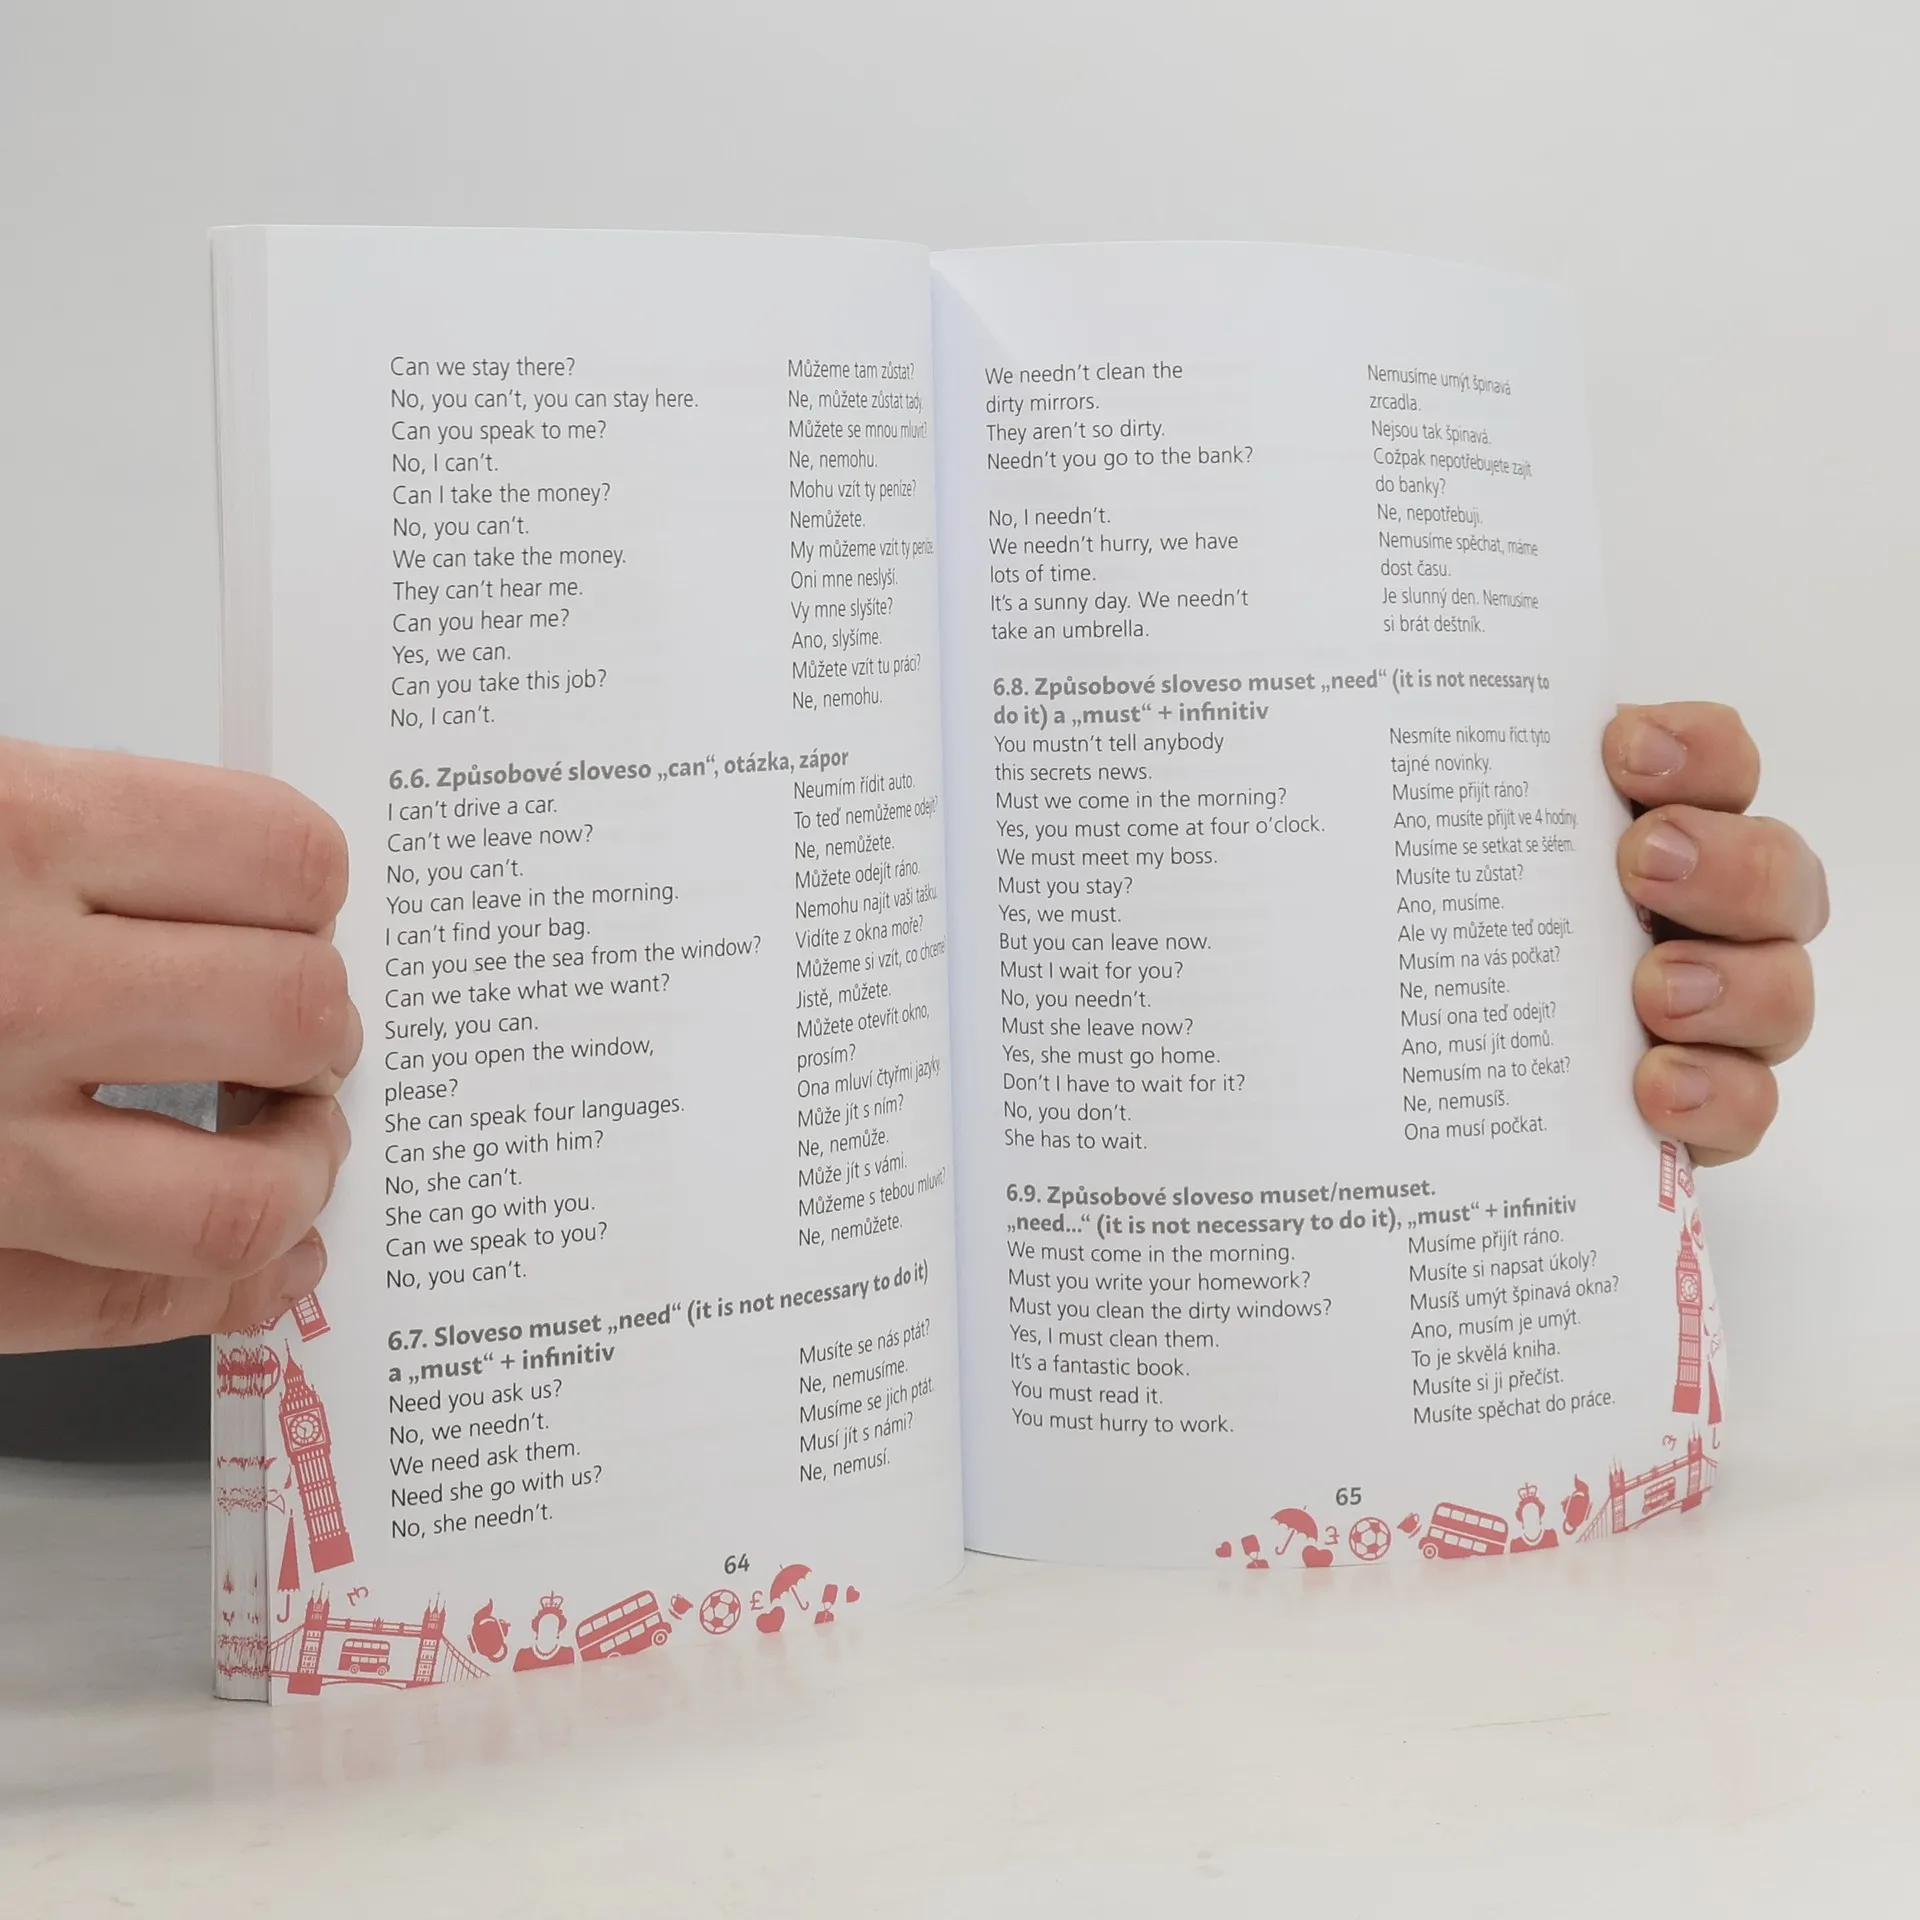 Can we stay there? Můžeme tam zůstat?
No, you can't, you can stay here. Ne, můžete zůstat tady.
Can you speak to me? Můžete se mnou mluvit?
No, I can't. Ne, nemohu.
Can I take the money? Mohu vzít ty peníze?
No, you can't. Nemůžete.
We can take the money. My můžeme vzít ty peníze.
They can't hear me. Oni mne neslyší.
Can you hear me? Vy mne slyšíte?
Yes, we can. Ano, slyšíme.
Can you take this job? Můžete vzít tu práci?
No, I can't. Ne, nemohu.
6.6. Způsobové sloveso „can“, otázka, zápor
I can't drive a car. Neumím řídit auto.
Can't we leave now? To teď nemůžeme odejít?
No, you can't. Ne, nemůžete.
You can leave in the morning. Můžete odejít ráno.
I can't find your bag. Nemohu najít vaši tašku.
Can you see the sea from the window? Vidíte z okna moře?
Can we take what we want? Můžeme si vzít, co chceme?
Surely, you can. Jistě, můžete.
Can you open the window, Můžete otevřít okno,
please? prosím?
She can speak four languages. Ona mluví čtyřmi jazyky.
Can she go with him? Může jít s ním?
No, she can't. Ne, nemůže.
She can go with you. Může jít s vámi.
Can we speak to you? Můžeme s tebou mluvit?
No, you can't. Ne, nemůžete.
6.7. Sloveso muset „need“ (it is not necessary to do it)
a „must“ + infinitiv
Need you ask us? Musíte se nás ptát?
No, we needn't. Ne, nemusíme.
We need ask them. Musíme se jich ptát.
Need she go with us? Musí jít s námi?
No, she needn't. Ne, nemusí.
64
We needn't clean the Nemusíme umýt špinavá
dirty mirrors. zrcadla.
They aren't so dirty. Nejsou tak špinavá.
Needn't you go to the bank? Cožpak nepotřebujete zajít
do banky?
No, I needn't. Ne, nepotřebuji.
We needn't hurry, we have Nemusíme spěchat, máme
lots of time. dost času.
It's a sunny day. We needn't Je slunný den. Nemusíme
take an umbrella. si brát deštník.
6.8. Způsobové sloveso muset „need“ (it is not necessary to
do it) a „must“ + infinitiv
You mustn't tell anybody Nesmíte nikomu říct tyto
this secrets news. tajné novinky.
Must we come in the morning? Musíme přijít ráno?
Yes, you must come at four o'clock. Ano, musíte přijít ve 4 hodiny.
We must meet my boss. Musíme se setkat se šéfem.
Must you stay? Musíte tu zůstat?
Yes, we must. Ano, musíme.
But you can leave now. Ale vy můžete teď odejít.
Must I wait for you? Musím na vás počkat?
No, you needn't. Ne, nemusíte.
Must she leave now? Musí ona teď odejít?
Yes, she must go home. Ano, musí jít domů.
Don't I have to wait for it? Nemusím na to čekat?
No, you don't. Ne, nemusíš.
She has to wait. Ona musí počkat.
6.9. Způsobové sloveso muset/nemuset.
„need...“ (it is not necessary to do it), „must“ + infinitiv
We must come in the morning. Musíme přijít ráno.
Must you write your homework? Musíte si napsat úkoly?
Must you clean the dirty windows? Musíš umýt špinavá okna?
Yes, I must clean them. Ano, musím je umýt.
It's a fantastic book. To je skvělá kniha.
You must read it. Musíte si ji přečíst.
You must hurry to work. Musíte spěchat do práce.
65